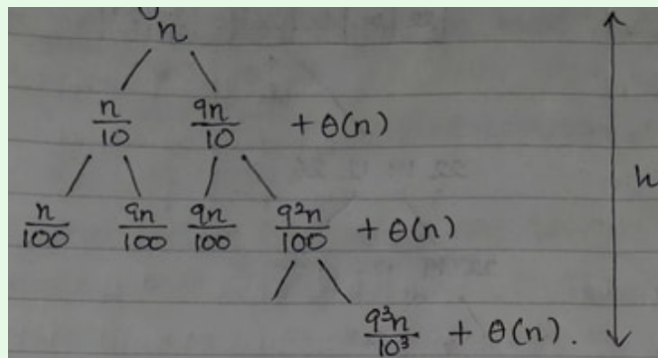 n
n/10 9n/10 + θ(n)
n/100 9n/100 9n/100 9²n/100 + θ(n)
h
9³n/10³ + θ(n).